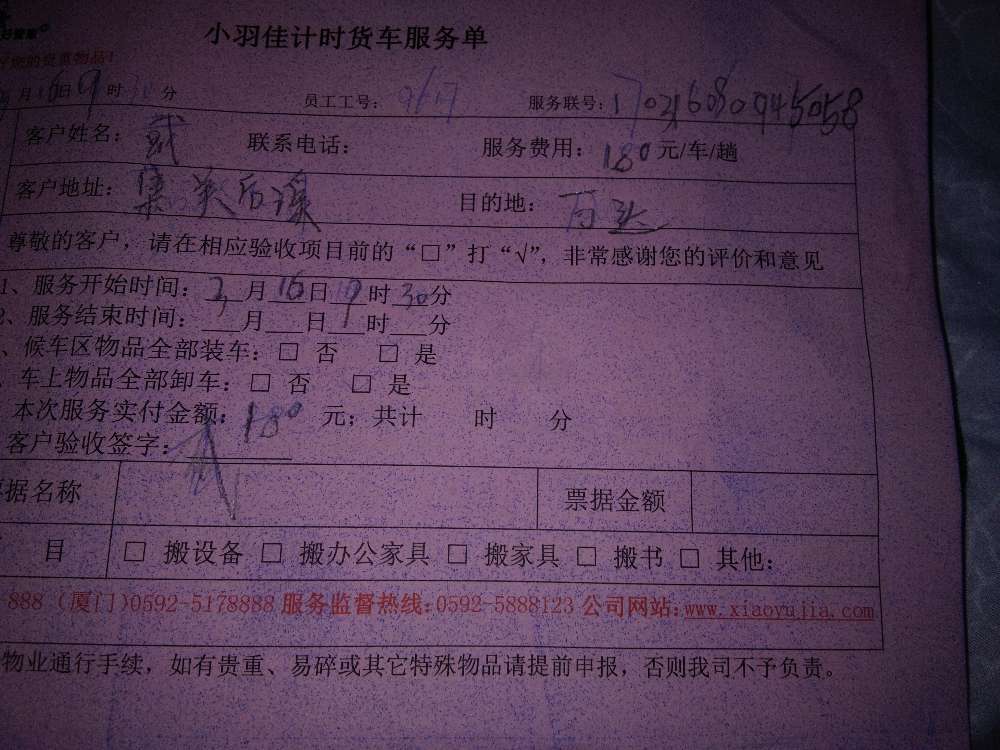 小羽佳计时货车服务单
您的贵重物品!
月16日9时30分 员工工号: 服务联号: 170316080945058
客户姓名: 戴 联系电话: 服务费用: 180元/车/趟
客户地址: 集美后溪 目的地:
尊敬的客户，请在相应验收项目前的“□”打“√”, 非常感谢您的评价和意见
1、服务开始时间: 3月16日9时30分
2、服务结束时间: ___月___日___时___分
、候车区物品全部装车: □ 否 □ 是
车上物品全部卸车: □ 否 □ 是
本次服务实付金额: 180 元; 共计 时 分
客户验收签字:
票据名称 票据金额
目 □ 搬设备 □ 搬办公家具 □ 搬家具 □ 搬书 □ 其他:
-888 (厦门)0592-5178888 服务监督热线:0592-5888123 公司网站:www.xiaoyujia.com
物业通行手续，如有贵重、易碎或其它特殊物品请提前申报，否则我司不予负责。